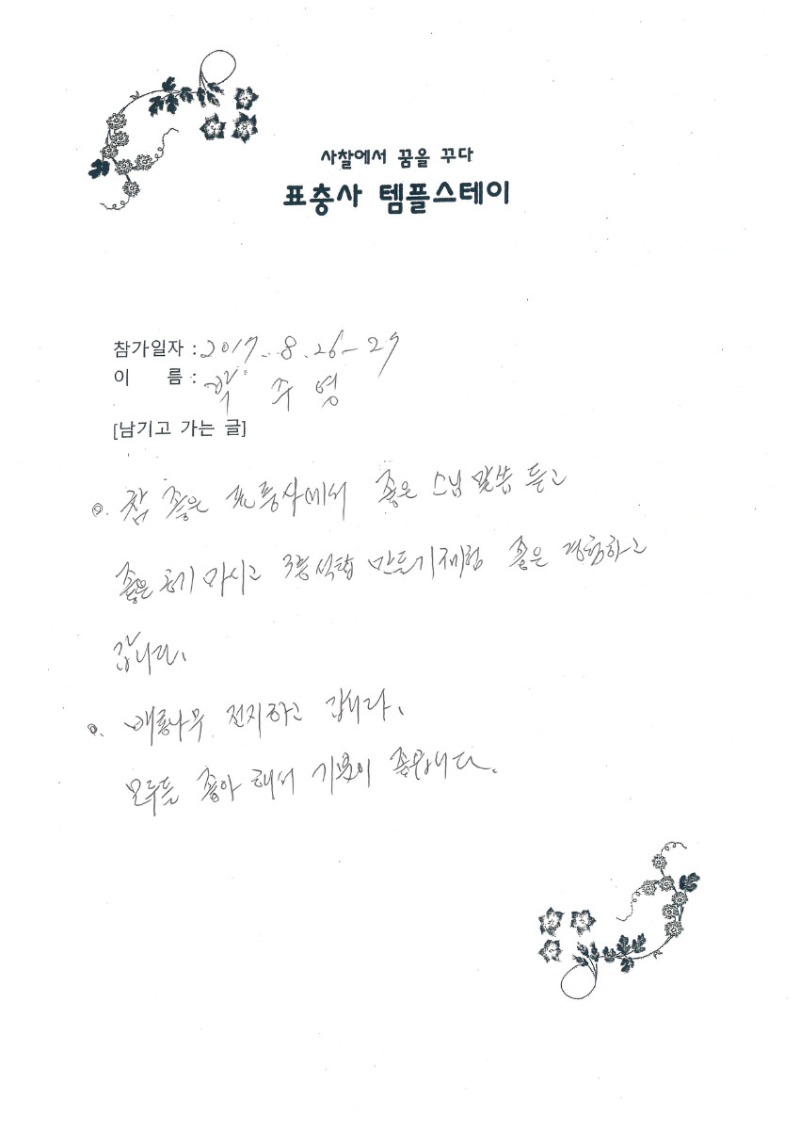 사찰에서 꿈을 꾸다
표충사 템플스테이
참가일자 : 2017. 8. 26-27
이 름 : 박 수 영
[남기고 가는 글]
◎. 참 좋은 표충사에서 좋은 스님 말씀 듣고
좋은 공기 마시고 3층석탑 만들기체험 좋은 경험하고
갑니다.
◎. 배롱나무 전지하고 갑니다.
모두들 좋아 해서 기분이 좋습니다.